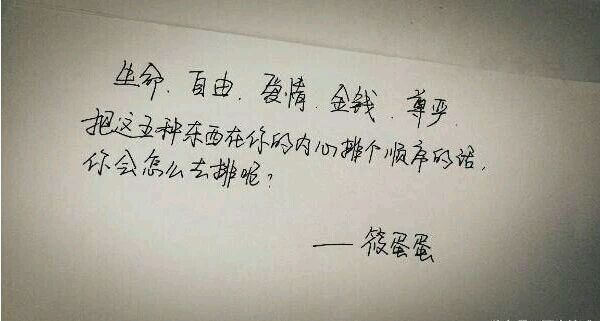 生命、自由、爱情、金钱、尊严
把这五种东西在你的内心排个顺序的话，
你会怎么去排呢？
——筱蛋蛋